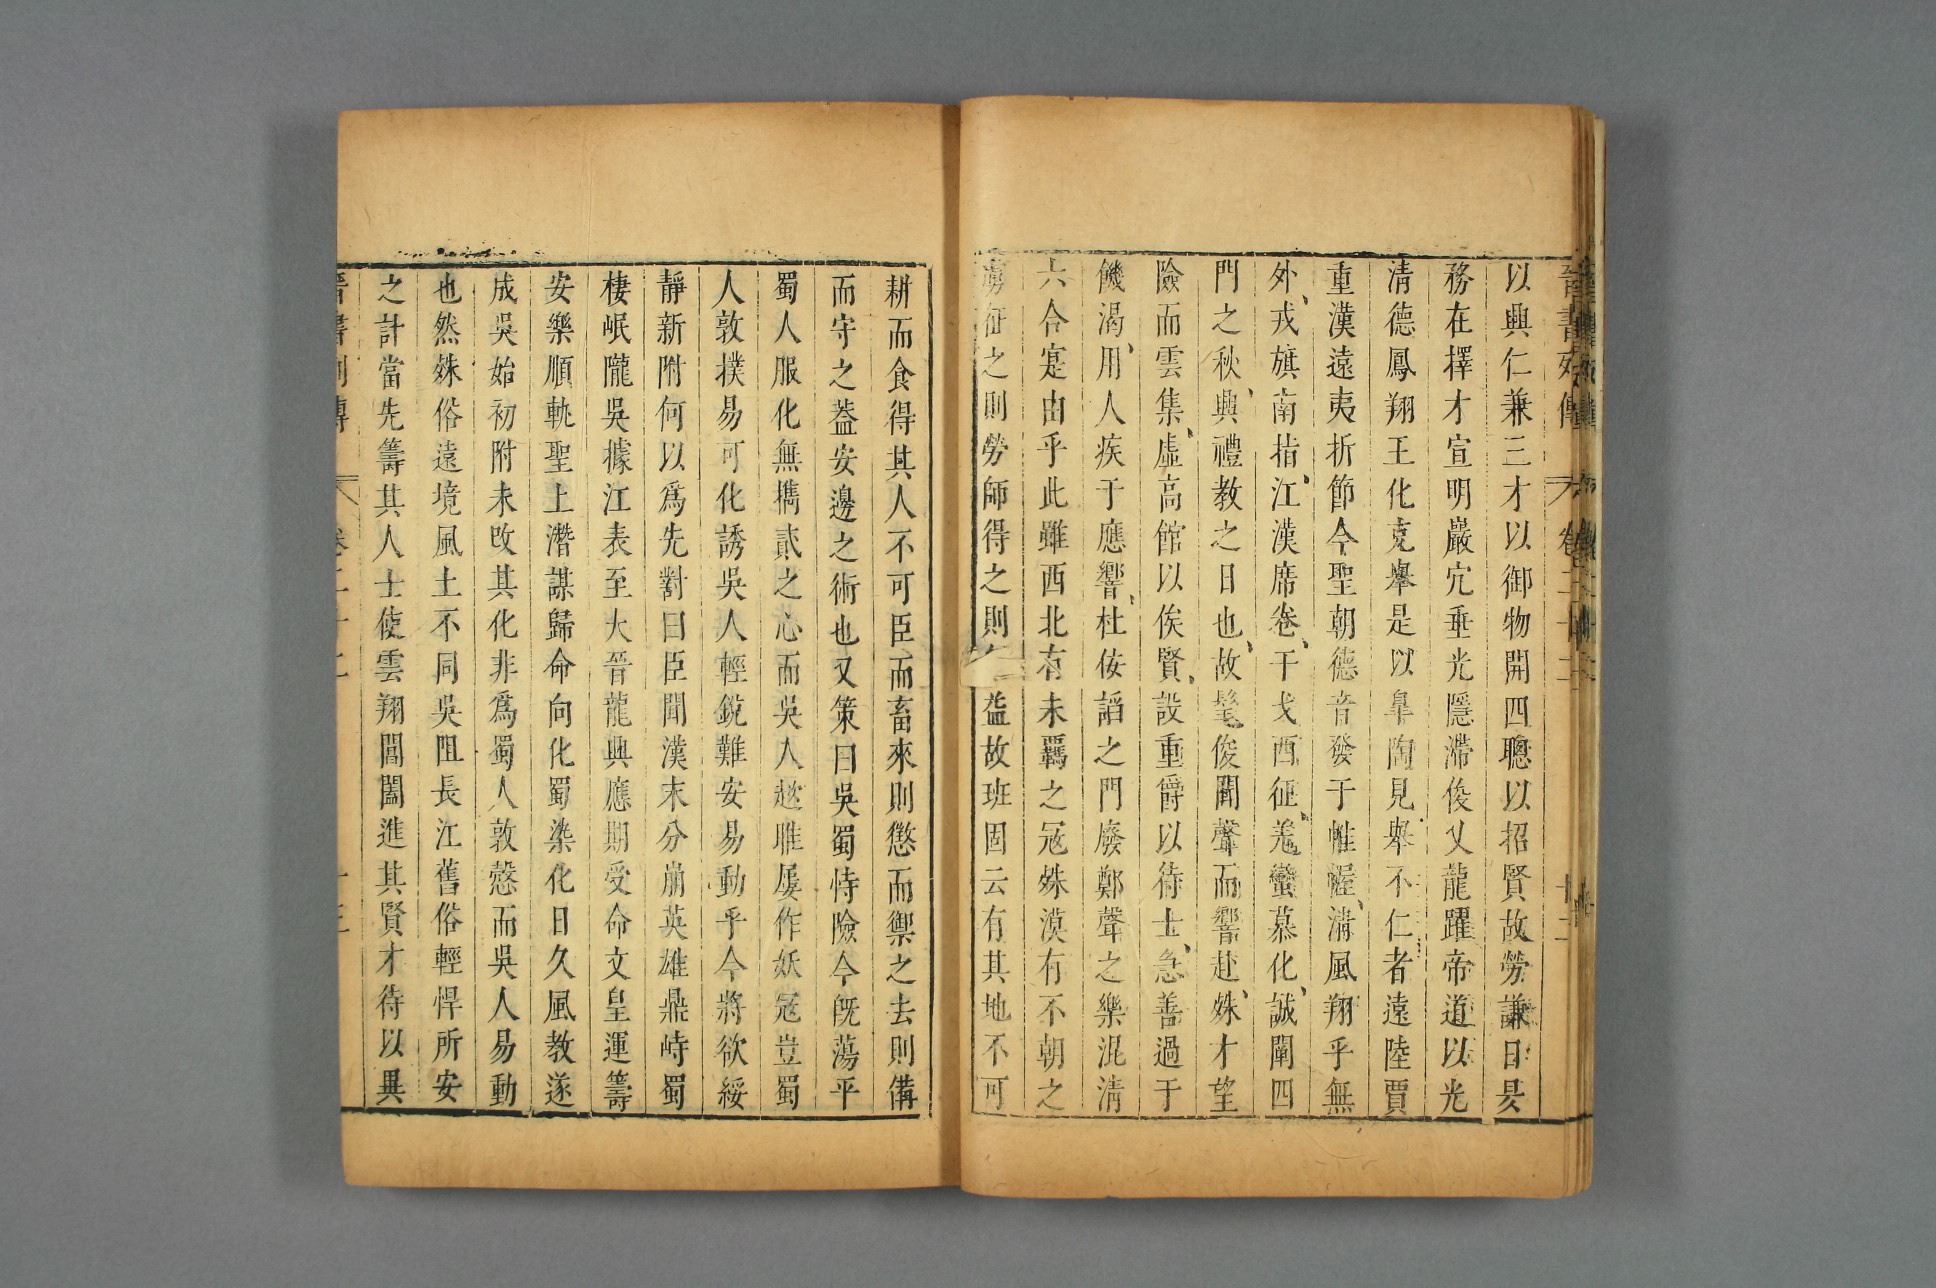 晉書列傳 卷二十二 十二
以興仁兼三才以御物開四聰以招賢故勞謙日昃
務在擇才宣明巖穴垂光隱滯俊乂龍躍帝道以光
清德鳳翔王化克舉是以臯陶見舉不仁者遠陸賈
重漢遠夷折節今聖朝德音發于帷幄清風翔乎無
外戎旗南指江漢席卷干戈西征羗蠻慕化誠闡四
門之秋興禮教之日也故髦俊聞聲而響赴姝才望
險而雲集虛高館以俟賢設重爵以待士急善過于
饑渴用人疾于應響杜佞諂之門廢鄭聲之樂混清
六合寔由乎此雖西北有未羈之冦姝漠有不朝之
虜征之則勞師得之則 益故班固云有其地不可
耕而食得其人不可臣而畜來則懲而禦之去則備
而守之葢安邊之術也又策曰吳蜀恃險今旣蕩平
蜀人服化無攜貳之心而吳人趑雎屢作妖冦豈蜀
人敦樸易可化誘吳人輕銳難安易動乎今將欲綏
靜新附何以爲先對曰臣聞漢末分崩英雄鼎峙蜀
棲岷隴吳據江表至大晉龍興應期受命文皇運籌
安樂順軌聖上潛謀歸命向化蜀染化日久風教遂
成吳始初附未改其化非爲蜀人敦慤而吳人易動
也然姝俗遠境風土不同吳阻長江舊俗輕悍所安
之計當先籌其人士使雲翔閶闔進其賢才待以異
晉書列傳 卷二十二 十三